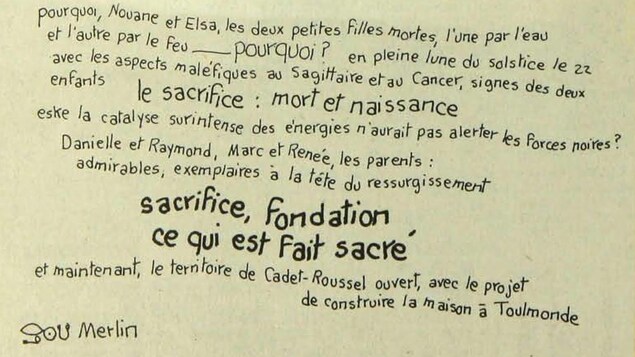 pourquoi, Nouane et Elsa, les deux petites filles mortes, l'une par l'eau
et l'autre par le feu ___ pourquoi ? en pleine lune du solstice le 22
avec les aspects maléfiques au Sagittaire et au Cancer, signes des deux
enfants le sacrifice : mort et naissance
eske la catalyse surintense des énergies n'aurait pas alerter les forces noires ?
Danielle et Raymond, Marc et Renée, les parents :
admirables, exemplaires à la tête du ressurgissement
sacrifice, fondation
ce qui est fait sacré
et maintenant, le territoire de Cadet-Roussel ouvert, avec le projet
de construire la maison à Toulmonde
Merlin